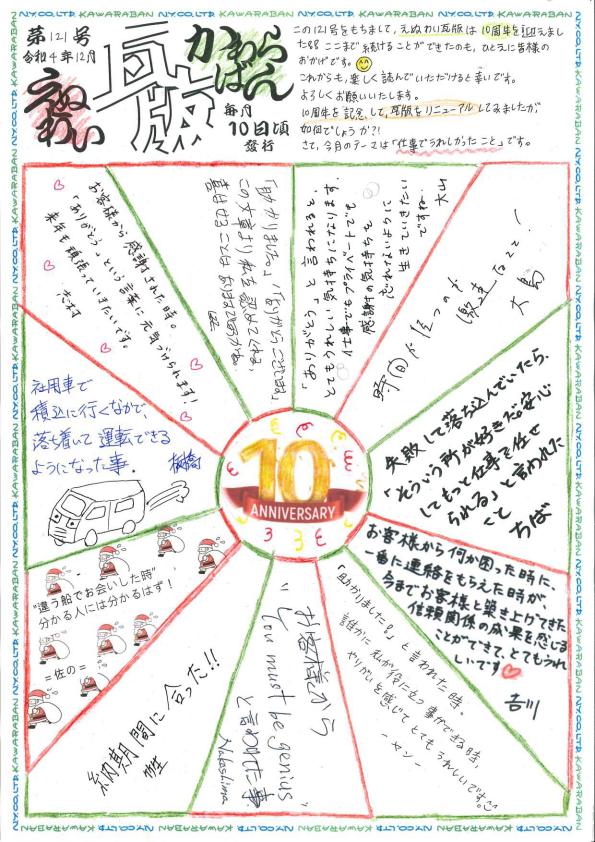 第121号
令和4年12月
えぬわい
瓦版
かわらばん
毎月
10日頃
発行
この121号をもちまして、えぬわい瓦版は10周年を迎えまし
た!! ここまで続けることができたのも、ひとえに皆様の
おかげです。
これからも、楽しく読んでいただけると幸いです。
よろしくお願いいたします。
10周年を記念して、瓦版をリニューアルしてみましたが、
如何でしょうか?!
さて、今月のテーマは「仕事でうれしかったこと」です。
お客様から感謝された時。
「ありがとう」という言葉に元気づけられます!
来年も頑張っていきたいです。
「助かりました。」「ありがとうございます。」
この文章より私を
喜ばせることは
「ありがとう」と言われると、
とてもうれしい気持ちになります。
仕事でもプライベートでも
感謝の気持ちを
忘れないように
生きていきたい
ですね。
大山
時間が経つのが
激速なこと!
大島
失敗して落ち込んでいたら、
「そういう所が好きだし安心
してもっと仕事を任せ
られる」と言われた
こと
ちば
お客様から何か困った時に、
一番に連絡をもらえた時が、
今までお客様と築き上げてきた
信頼関係の成果を感じる
ことができて、とてもうれ
しいです
吉川
「助かりました!」と言われた時。
誰かに私が役に立つ事ができる時、
やりがいを感じてとてもうれしいです。
-ヤン-
お客様から
"You must be genius"
と言われた事
Nakashima
納期間に合った!!
"違う船でお会いした時"
分かる人には分かるはず!
=佐の=
社用車で
積込に行くなかで、
落ち着いて運転できる
ようになった事。
10
ANNIVERSARY
N.Y.CO.,LTD. KAWARABAN